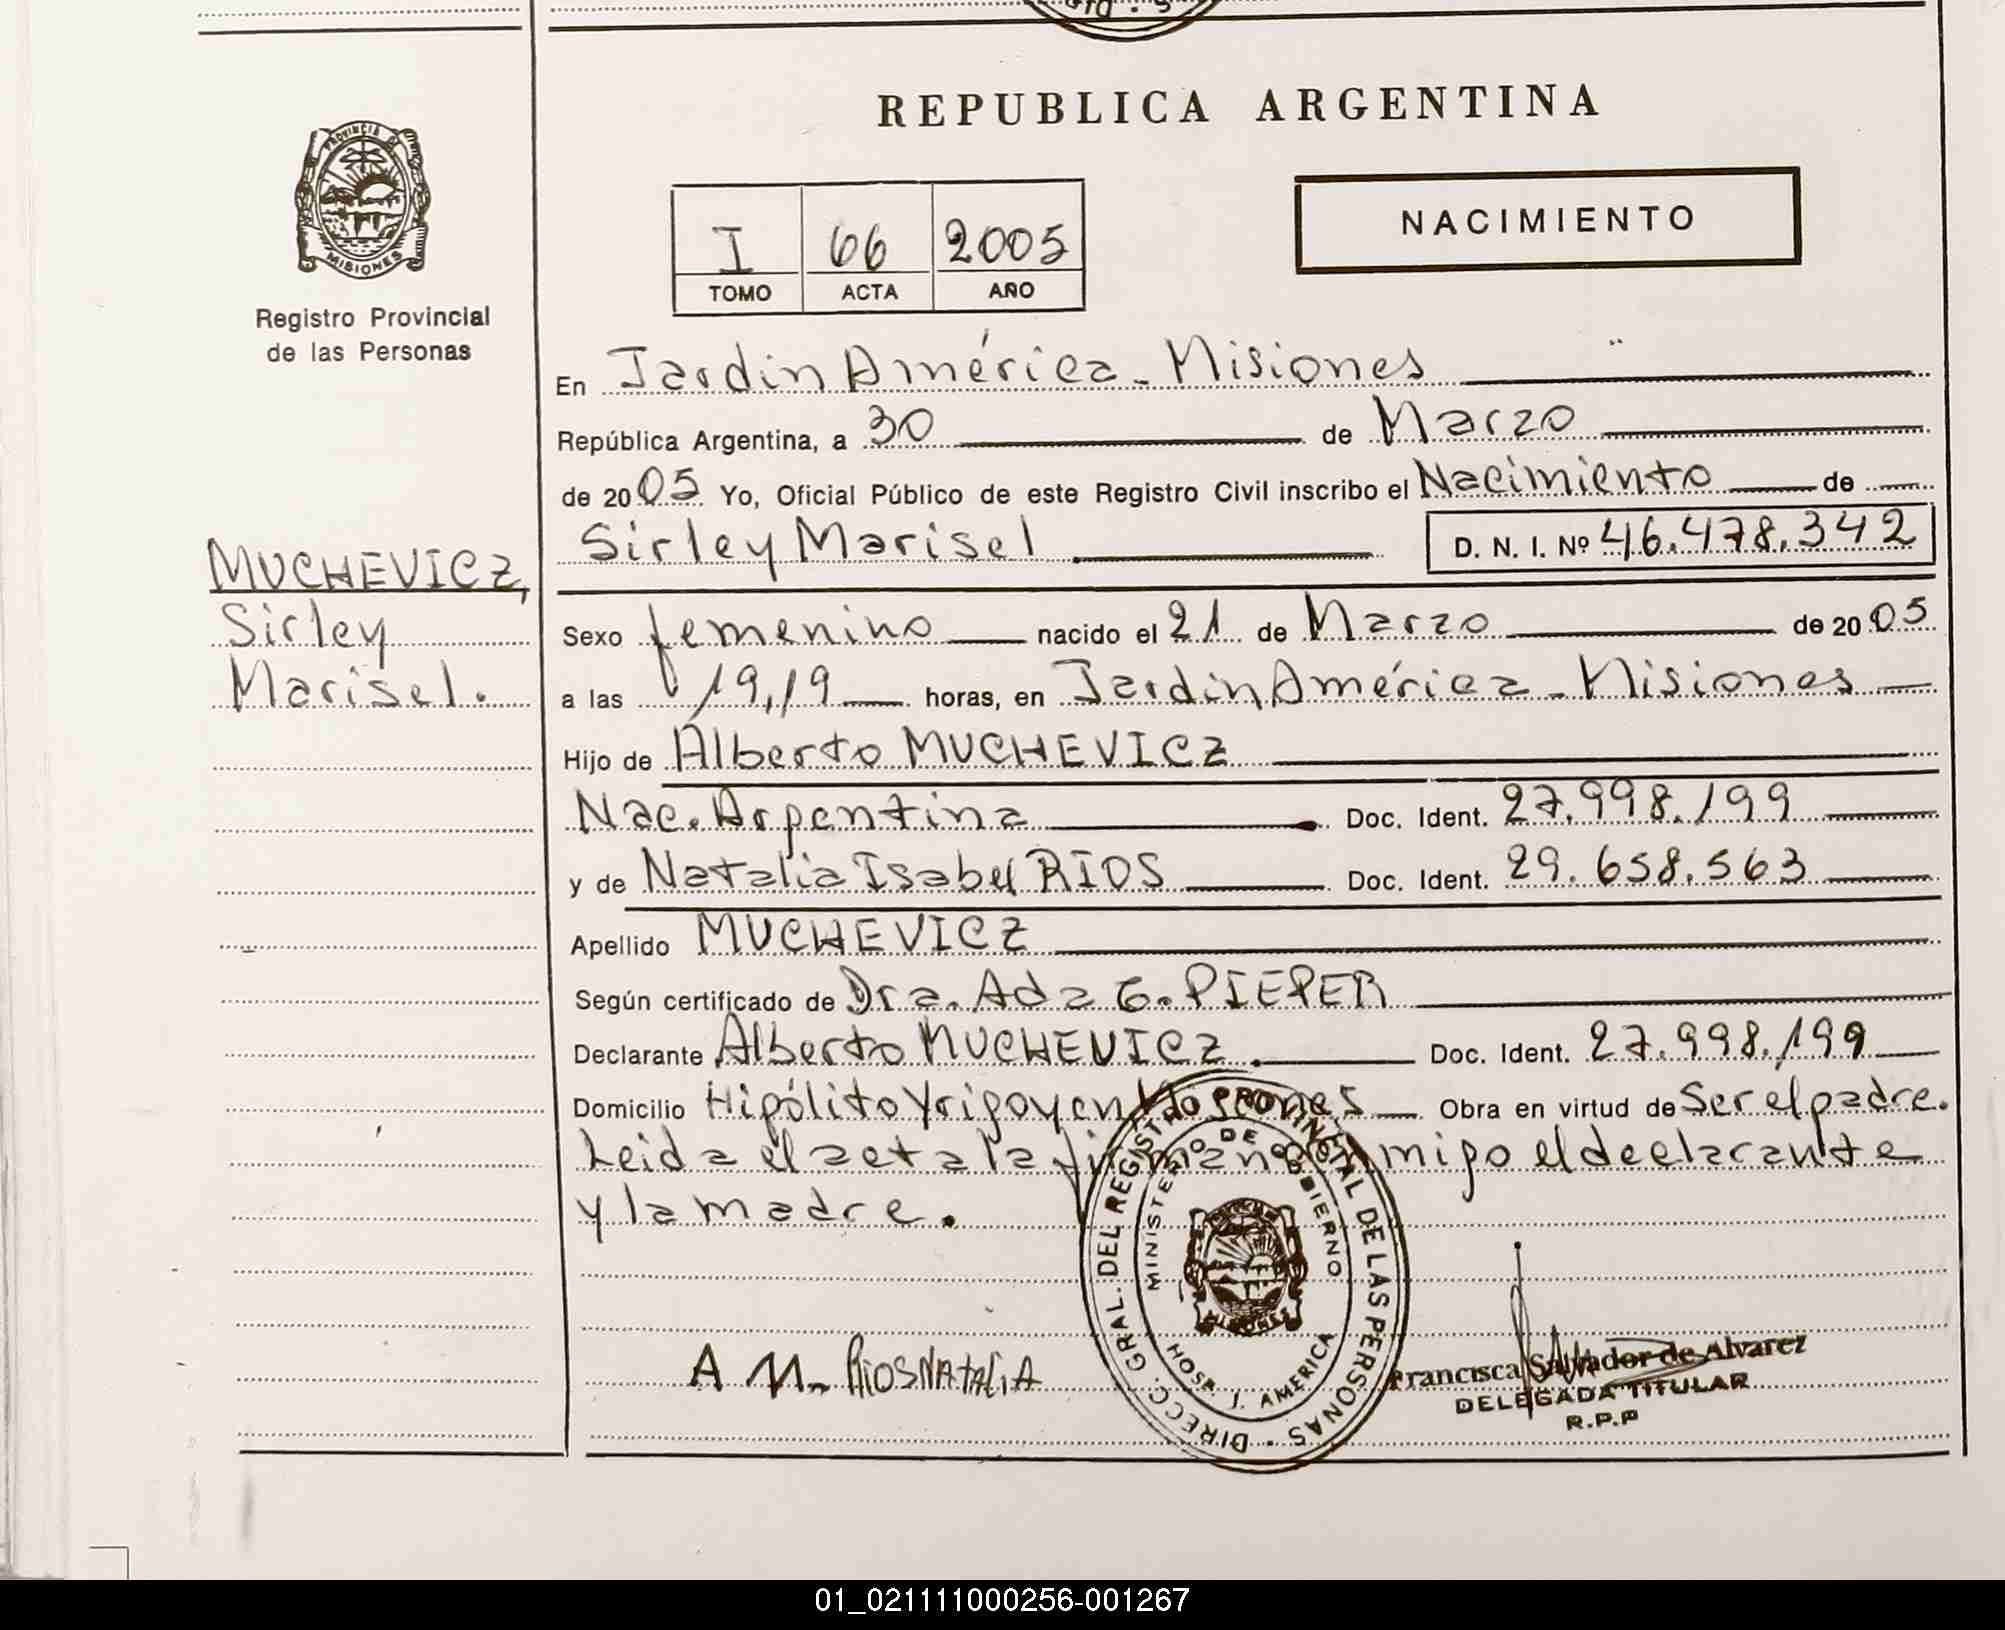 REPUBLICA ARGENTINA
PROVINCIA DE
MISIONES
Registro Provincial
de las Personas
NACIMIENTO
I 66 2005
TOMO ACTA AÑO
En Jardin América - Misiones
República Argentina, a 30 de Marzo
de 2005 Yo, Oficial Público de este Registro Civil inscribo el Nacimiento de
Sirley Marisel D. N. I. Nº 46.478.342
MUCHEVICZ,
Sirley
Marisel.
Sexo femenino nacido el 21 de Marzo de 2005
a las 19,19 horas, en Jardin América - Misiones
Hijo de Alberto MUCHEVICZ
Nac. Argentina Doc. Ident. 27.998.199
y de Natalia Isabel RIOS Doc. Ident. 29.658.563
Apellido MUCHEVICZ
Según certificado de Dra. Ada G. PIEPER
Declarante Alberto MUCHEVICZ. Doc. Ident. 27.998.199
Domicilio Hipólito Yrigoyen Misiones Obra en virtud de Ser el padre.
Leida el acta la firman conmigo el declarante
y la madre.
DIRECC. GRAL. DEL REGISTRO PROVINCIAL DE LAS PERSONAS
MINISTERIO DE GOBIERNO
MISIONES
HOSP. J. AMERICA
A M RiOS NAtALiA
Francisca Salvador de Alvarez
DELEGADA TITULAR
R.P.P
01_021111000256-001267